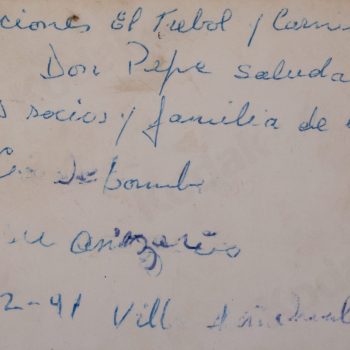 ciones El Trebol y Carn
Don Pepe Saluda
s socios y familia de
Bomb
aniversario
2-91 Vill